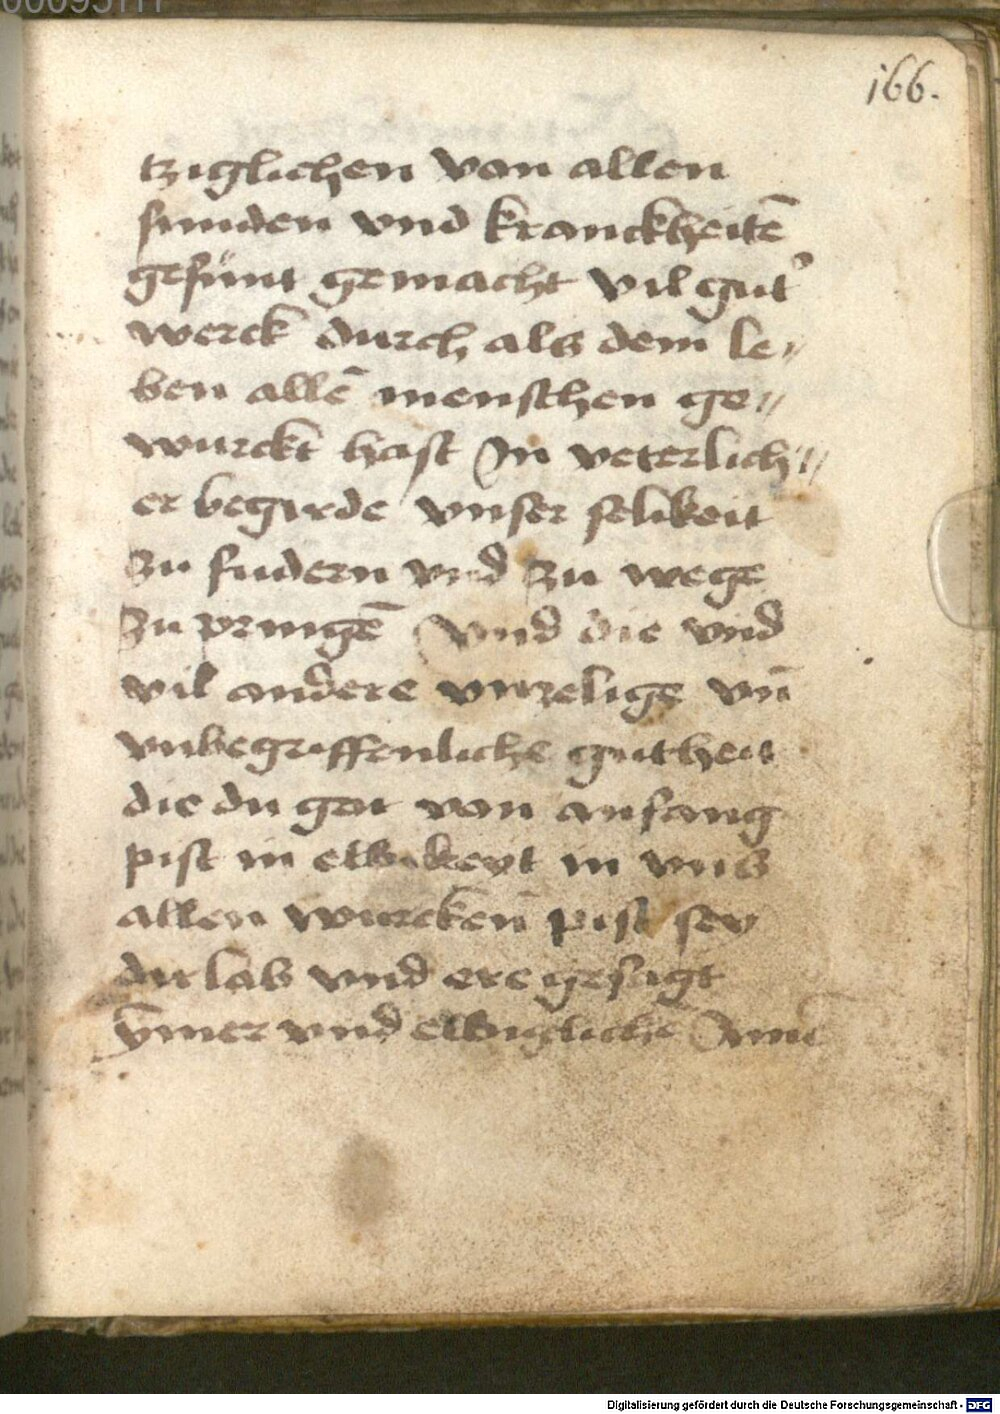 166.
tziglichen von allen
sunden vnd kranckheitē
gesünt gemacht vil gut'
werck durch als dem le//
ben allē menschen ge//
wurckt hast In veterlich//
er begirde vnser selikeit
zu fudern vnd zu wege
zu pringē Vnd die vnd
vil andere vnzelige vn̄
vnbegriffenliche gutheit
die du got von anfang
pist in ewikeyt in vns
allen wurcken pist sey
dir lab vnd ere gesagt
ymer vnd ewigliche
Digitalisierung gefördert durch die Deutsche Forschungsgemeinschaft - DFG